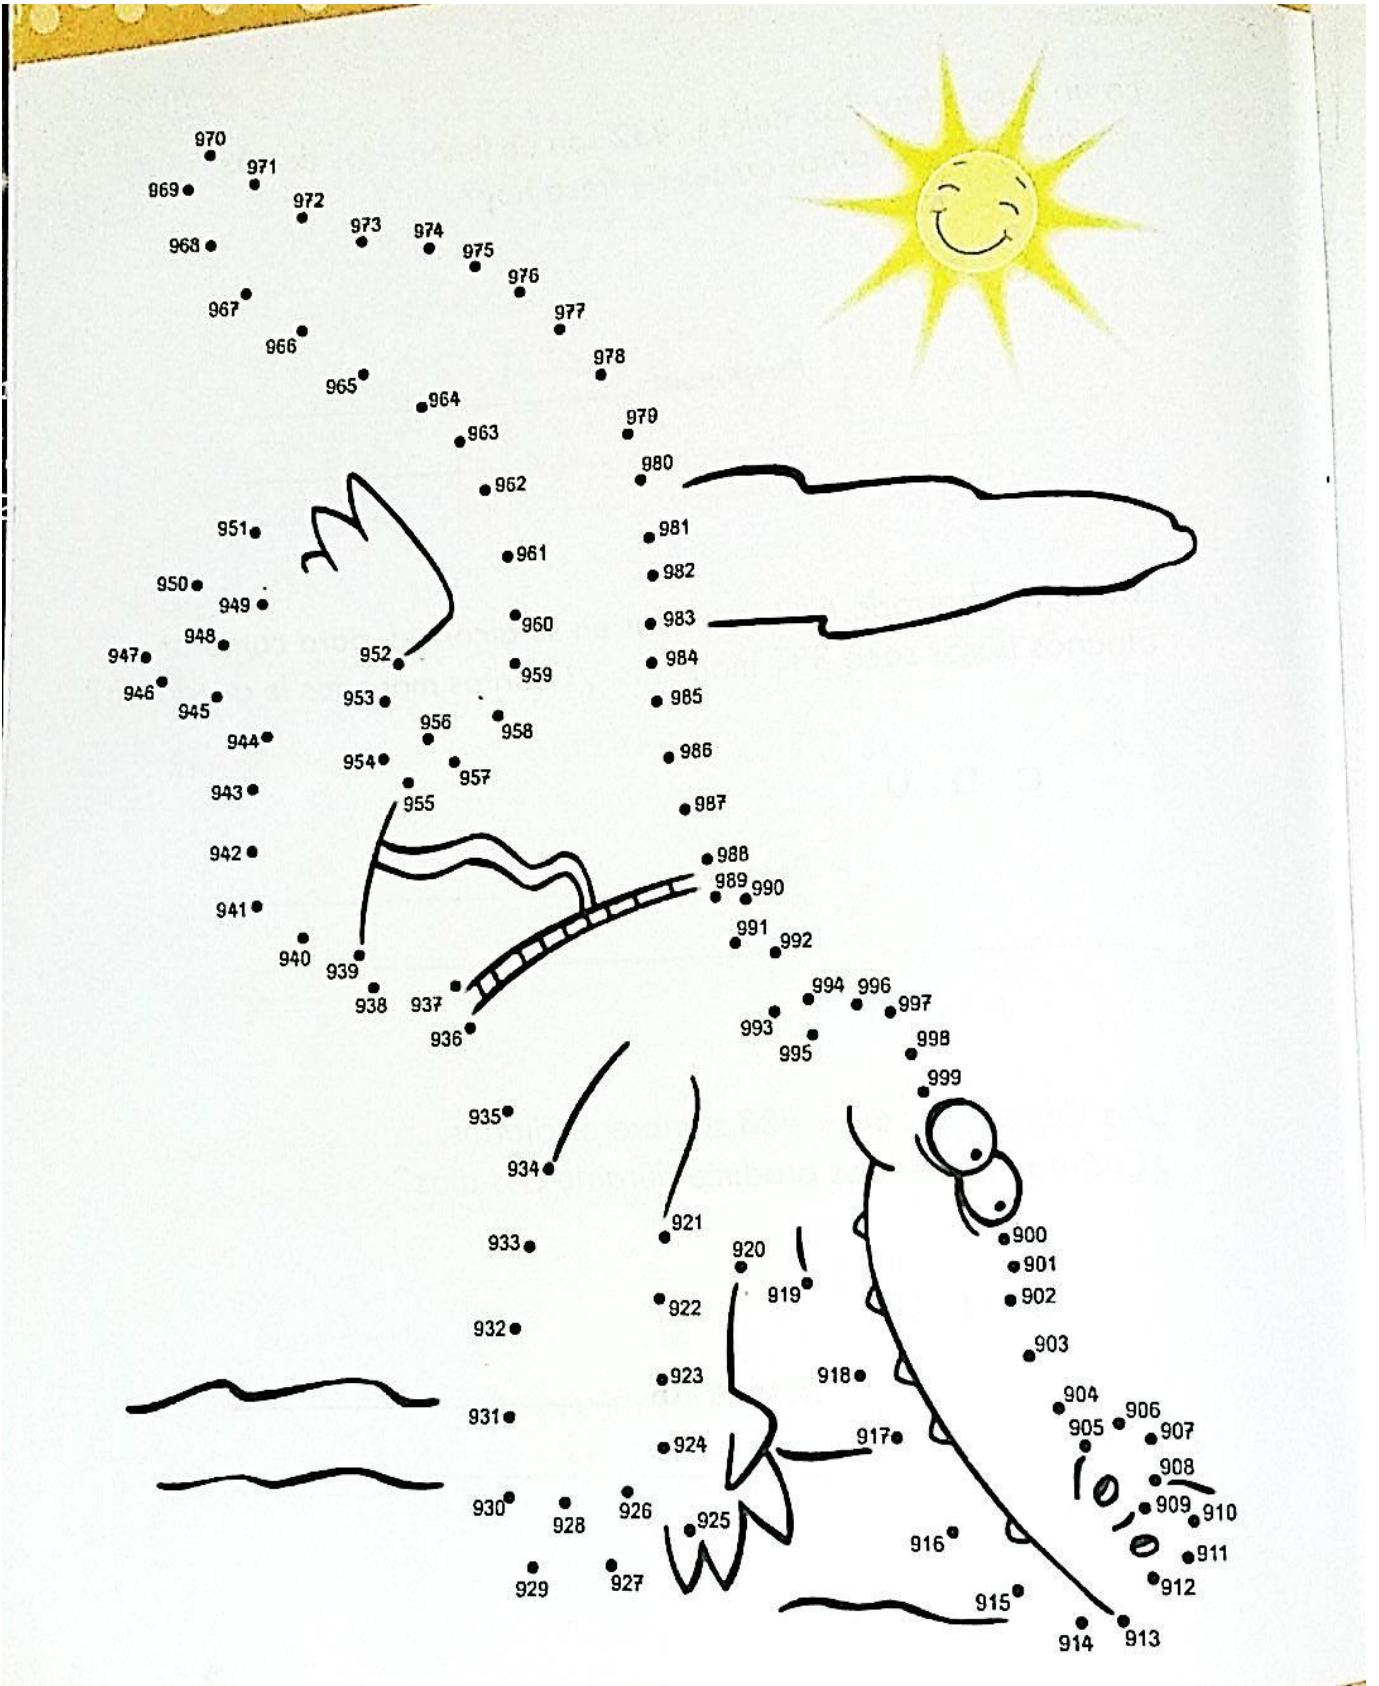 970
971
969
972
973
974
968
975
976
967
977
966
978
965
964
979
963
980
962
951
981
961
950
982
949
960
983
948
947
952
984
959
946
953
985
945
956
958
944
986
954
957
943
955
987
942
988
989
990
941
991
992
940
939
994
996
938
937
997
993
936
995
998
999
935
934
921
933
920
900
901
919
922
902
932
903
923
918
904
906
931
905
907
917
924
908
930
926
909
910
928
925
916
911
929
927
912
915
914
913